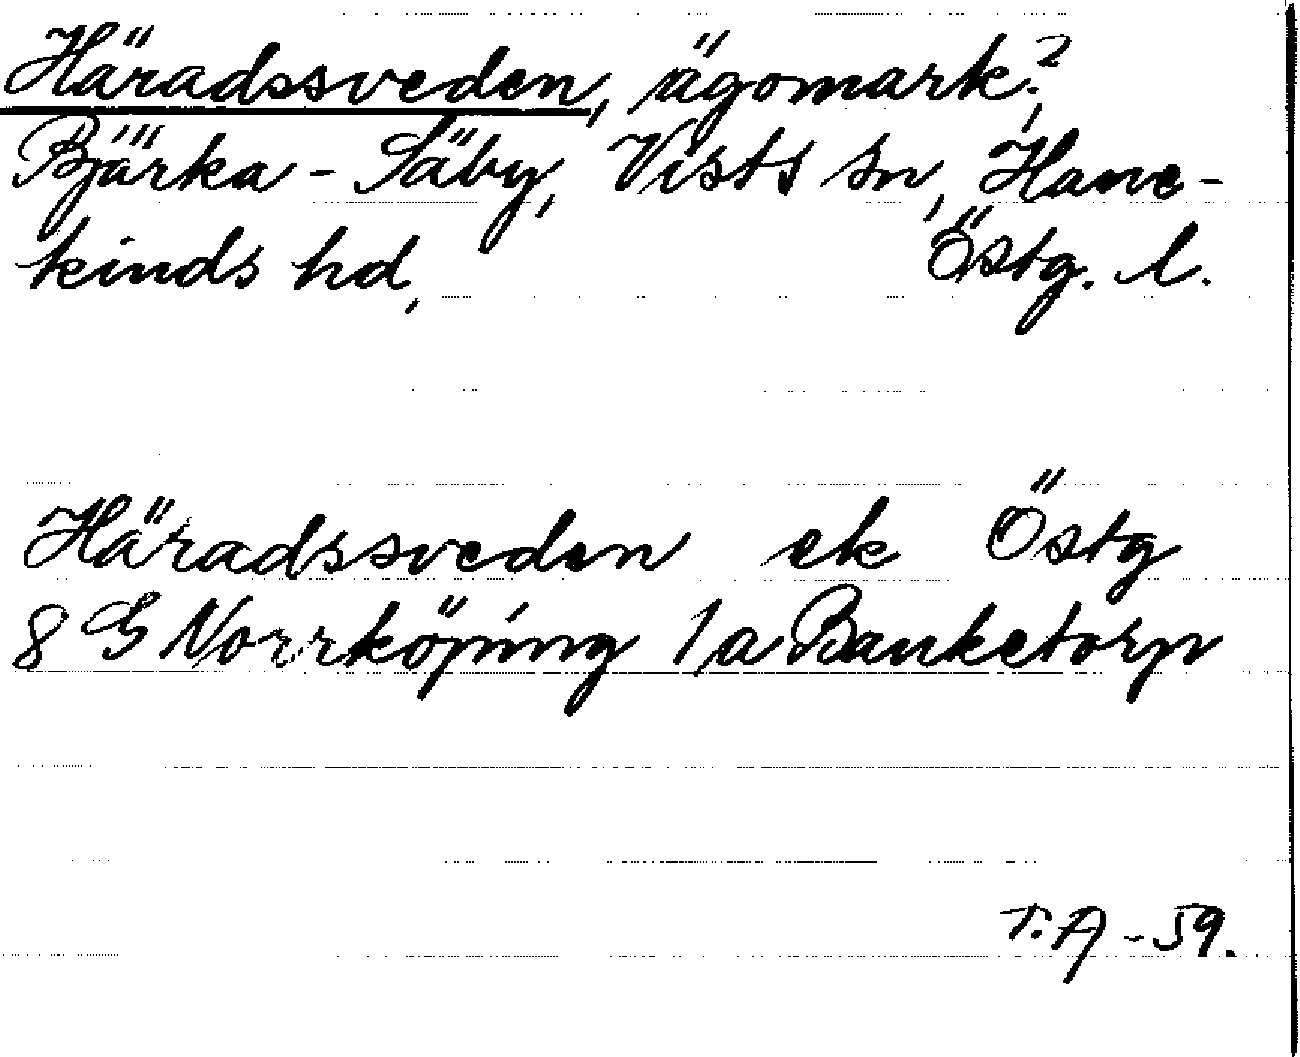 Häradssveden, ägomark?,
Bjärka-Säby, Vists sn, Hane-
kinds hd, Östg. l.
Häradssveden ek Östg
8 G Norrköping 1a Banketorp
T.A -59.